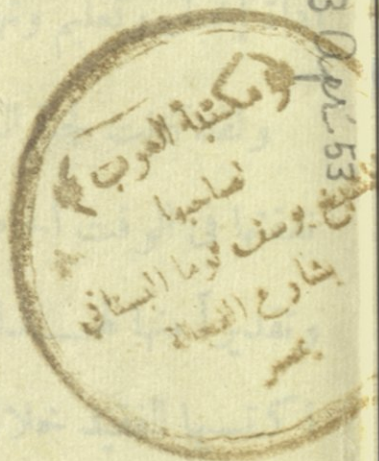 مكتبة العرب
لصاحبها
الشيخ يوسف توما البستاني
بشارع الفجالة
بمصر
3 Apr. 53